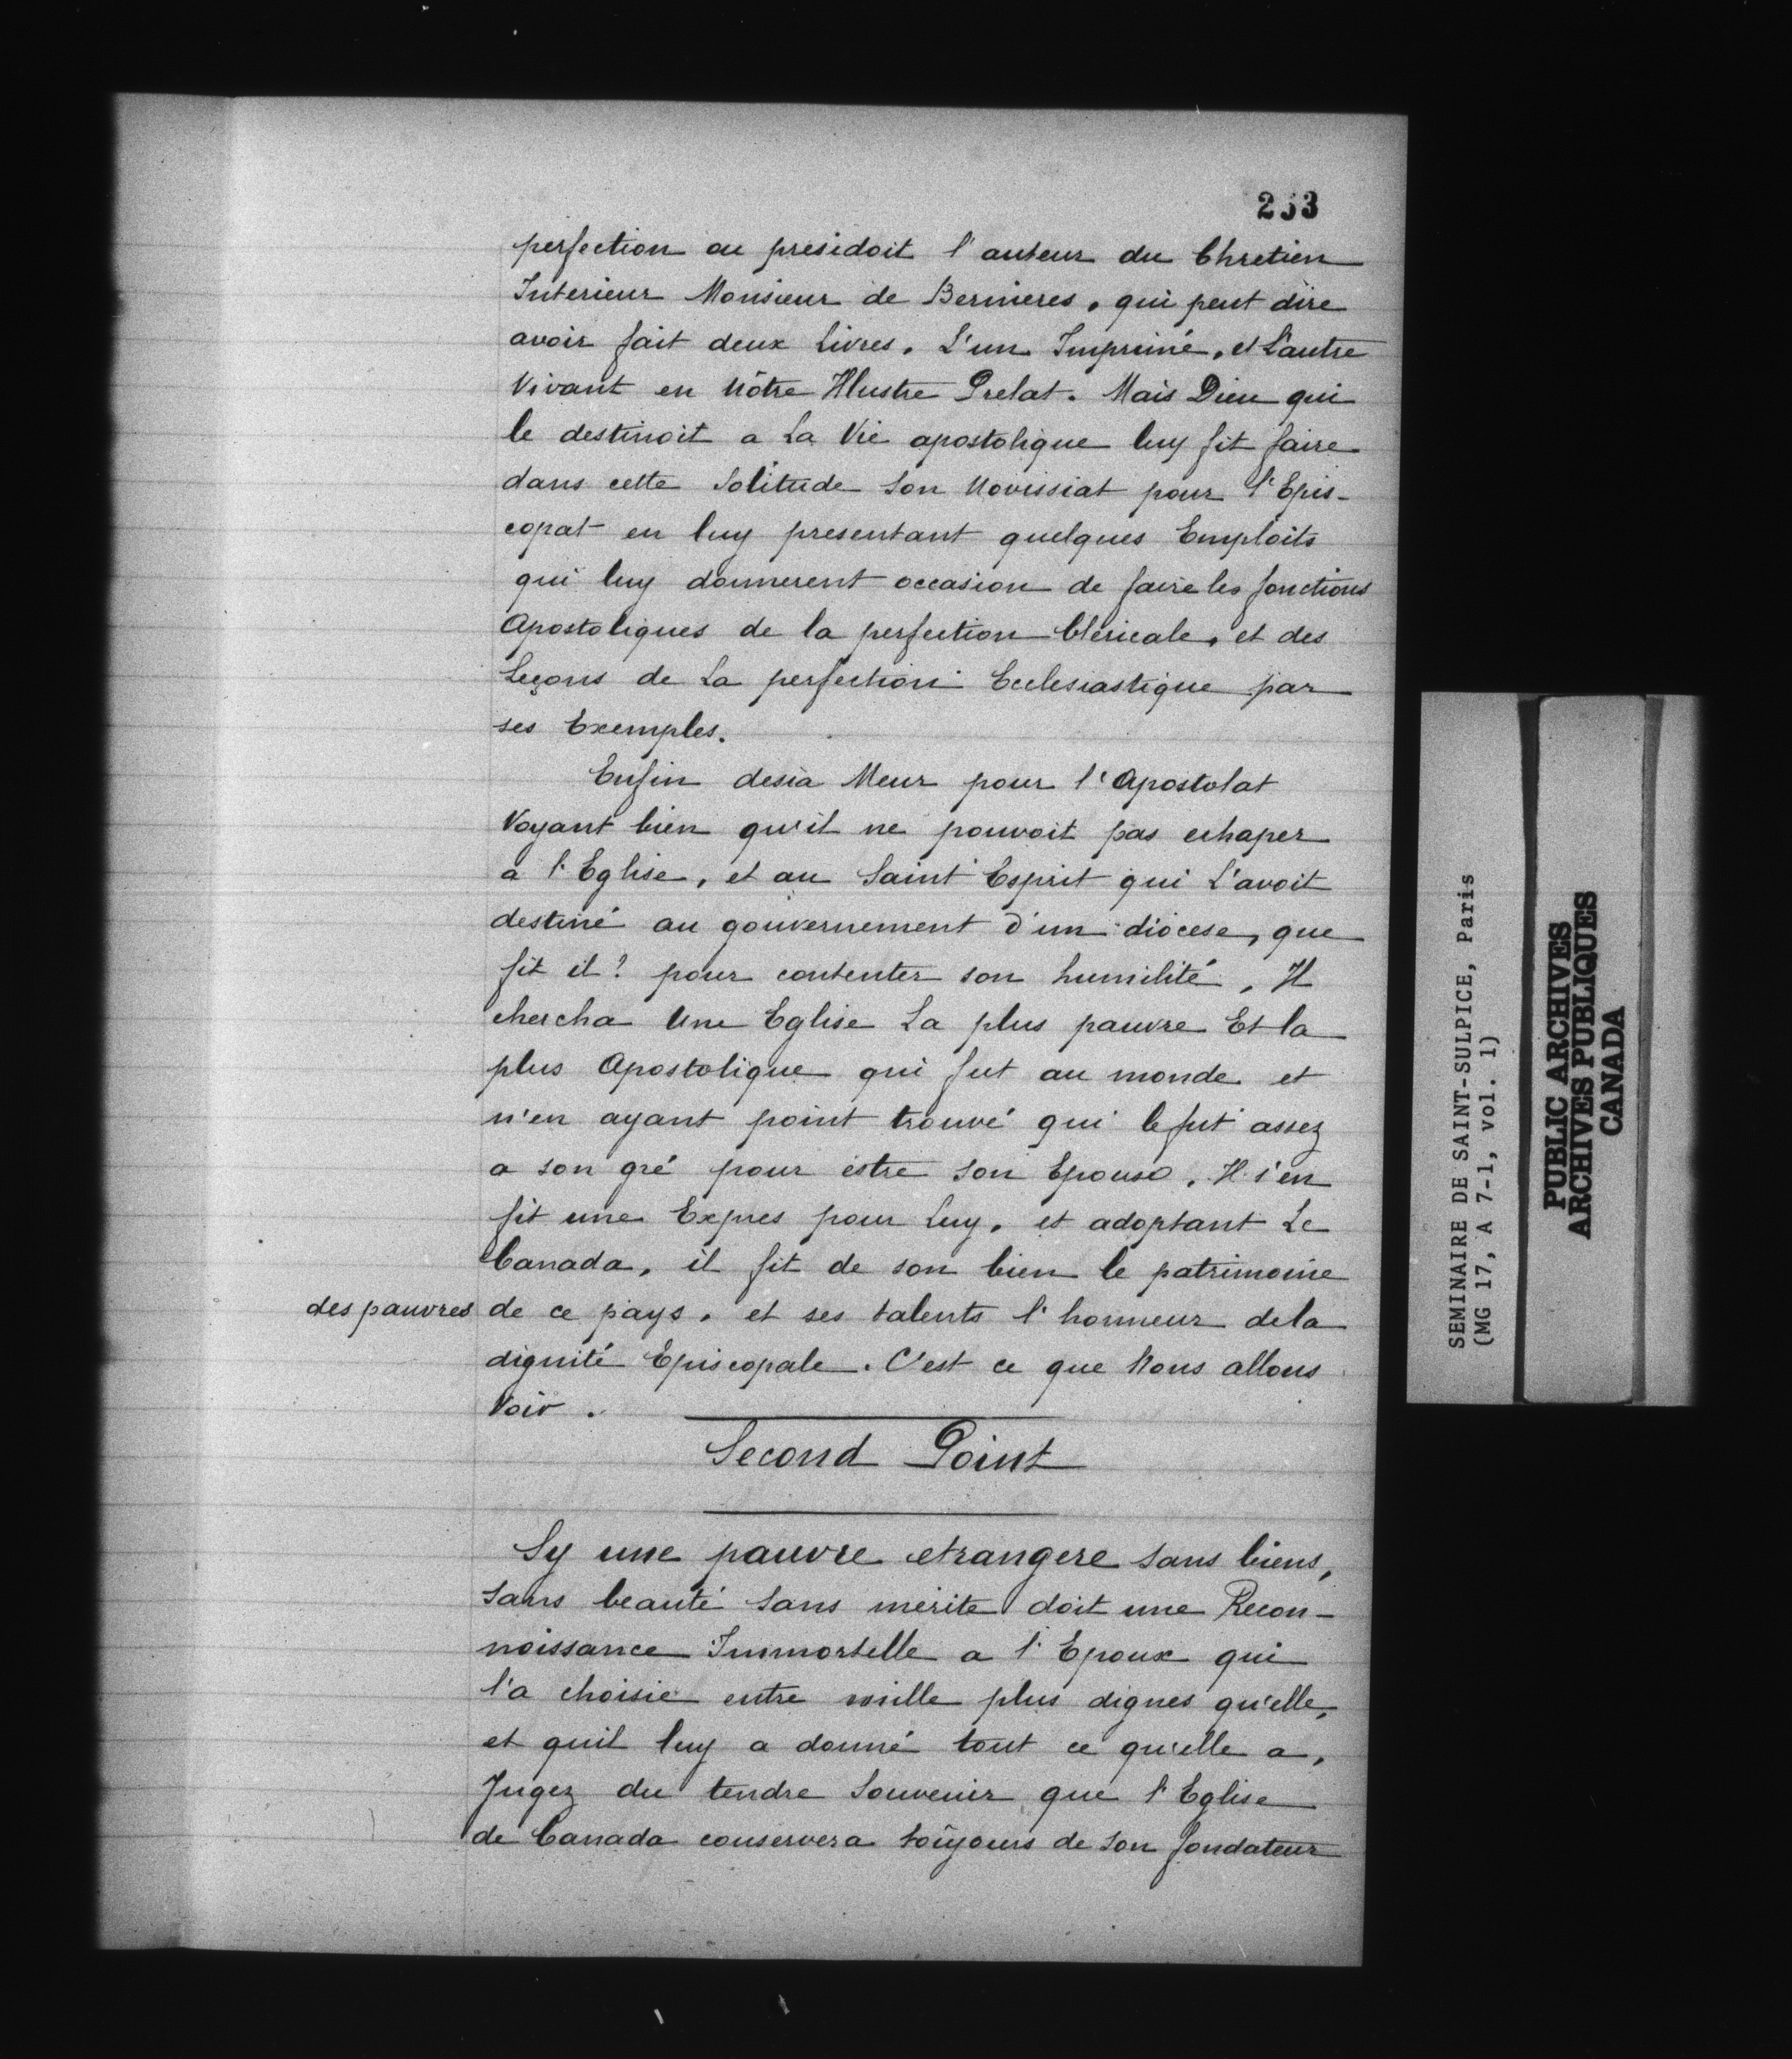 253
perfection ou presidoit l'auteur du Chretien
Interieur Monsieur de Bernieres, qui peut dire
avoir fait deux Livres. L'un Imprimé, et L'autre
Vivant en Nôtre Illustre Prelat. Mais Dieu qui
le destinoit a La Vie apostolique luy fit faire
dans cette Solitude Son Novissiat pour l'Epis-
copat en luy presentant quelques Emploits
qui luy donnerent occasion de faire les fonctions
Apostoliques de la perfection Clericale, et des
Leçons de La perfection Ecclesiastique par
ses Exemples.
Enfin desia Meur pour l'Apostolat
Voyant bien qu'il ne pouvoit pas echaper
a l'Eglise, et au Saint Esprit qui L'avoit
destiné au gouvernement d'un diocese, que
fit il? pour contenter son humilité, Il
chercha Une Eglise La plus pauvre Et la
plus Apostolique qui fut au monde et
n'en ayant point trouvé qui le fut assez
a son gré pour estre Son Epouse. Il s'en
fit une Expres pour Luy, et adoptant Le
Canada, il fit de son bien le patrimoine
des pauvres de ce pays. et ses talents l'honneur de la
dignité Episcopale. C'est ce que Nous allons
Voir.
Second Point
Sy une pauvre etrangere sans biens,
Sans beauté Sans merite doit une Recon-
noissance Immortelle a l'Epoux qui
l'a choisie entre mille plus dignes qu'elle,
et quil luy a donné tout ce qu'elle a,
Jugez du tendre Souvenir que l'Eglise
de Canada conservera toûjours de Son fondateur
SEMINAIRE DE SAINT-SULPICE, Paris
(MG 17, A 7-1, vol. 1)
PUBLIC ARCHIVES
ARCHIVES PUBLIQUES
CANADA